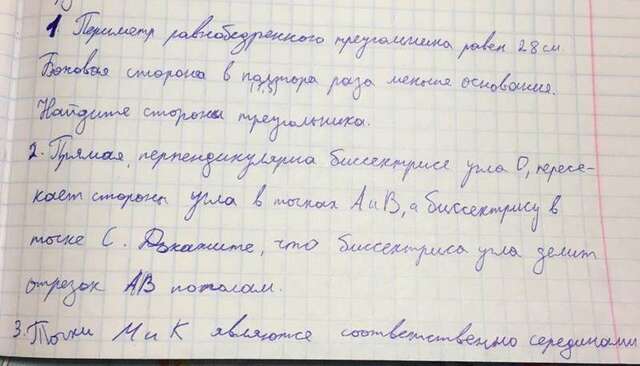 1 Периметр равнобедренного треугольника равен 28 см.
Боковая сторона в полтора раза меньше основания.
(1,5)
Найдите стороны треугольника.
2. Прямая, перпендикулярна биссектрисе угла О, пересе-
кает стороны угла в точках А и В, а биссектрису в
точке С. Докажите, что биссектриса угла делит
отрезок АВ пополам.
3. Точки М и К являются соответственно серединами